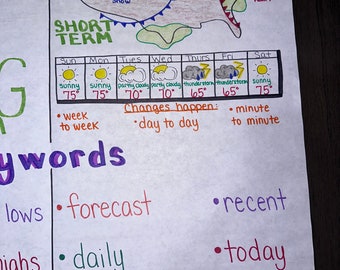 snow
SHORT
TERM
Sun Mon Tues Wed Thurs Fri Sat
sunny sunny partly cloudy partly cloudy thunderstorm thunderstorm sunny
75° 75° 70° 70° 65° 65° 75°
Changes happen:
• week to week
• day to day
• minute to minute
G
ywords
lows
• forecast
• recent
highs
• daily
• today